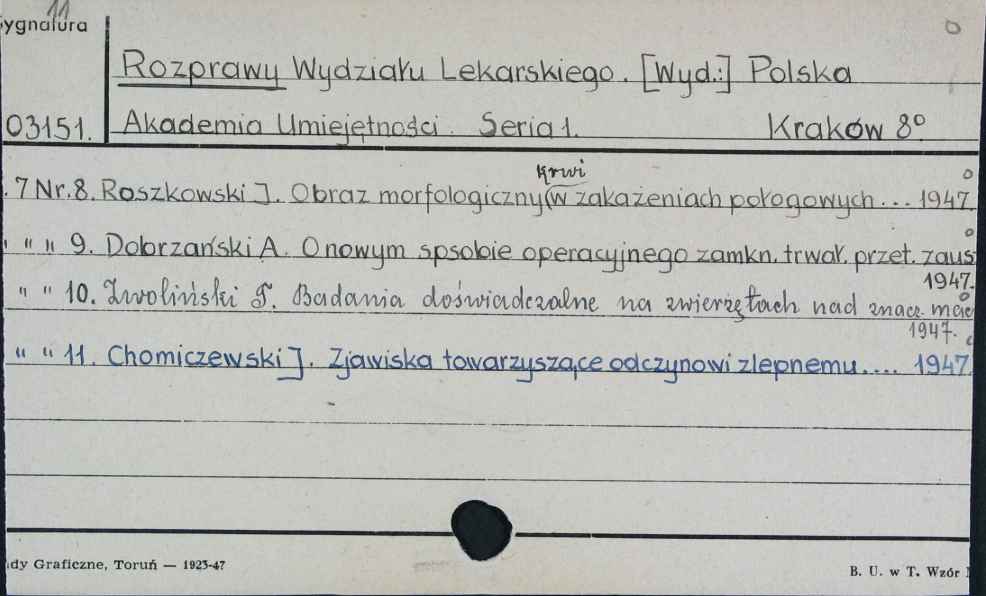 11
ygnatura
Rozprawy Wydziału Lekarskiego. [Wyd.:] Polska
03151. Akademia Umiejętności. Seria 1. Kraków 8º
krwi
. 7 Nr. 8. Roszkowski J. Obraz morfologiczny (w zakażeniach połogowych ... 1947.
" " 9. Dobrzański A. O nowym spsobie operacyjnego zamkn. trwał. przet. zaus
1947.
" " 10. Zwoliński S. Badania doświadczalne na zwierzętach nad znacz. mac
1947.
" " 11. Chomiczewski J. Zjawiska towarzyszące odczynowi zlepnemu.... 1947.
dy Graficzne, Toruń — 1923-47
B. U. w T. Wzór